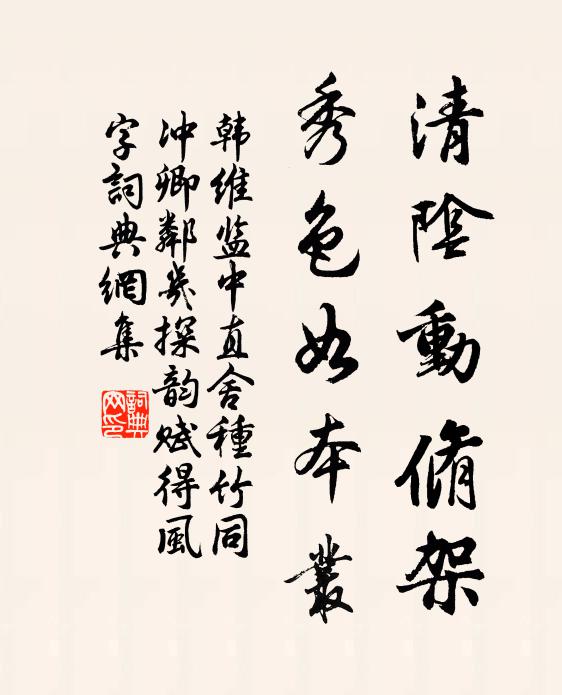 清陰動脩架
秀色如本叢
韩維监中直舍種竹同
沖卿鄰幾探韵赋得風
字詞典網集
詞典
网印